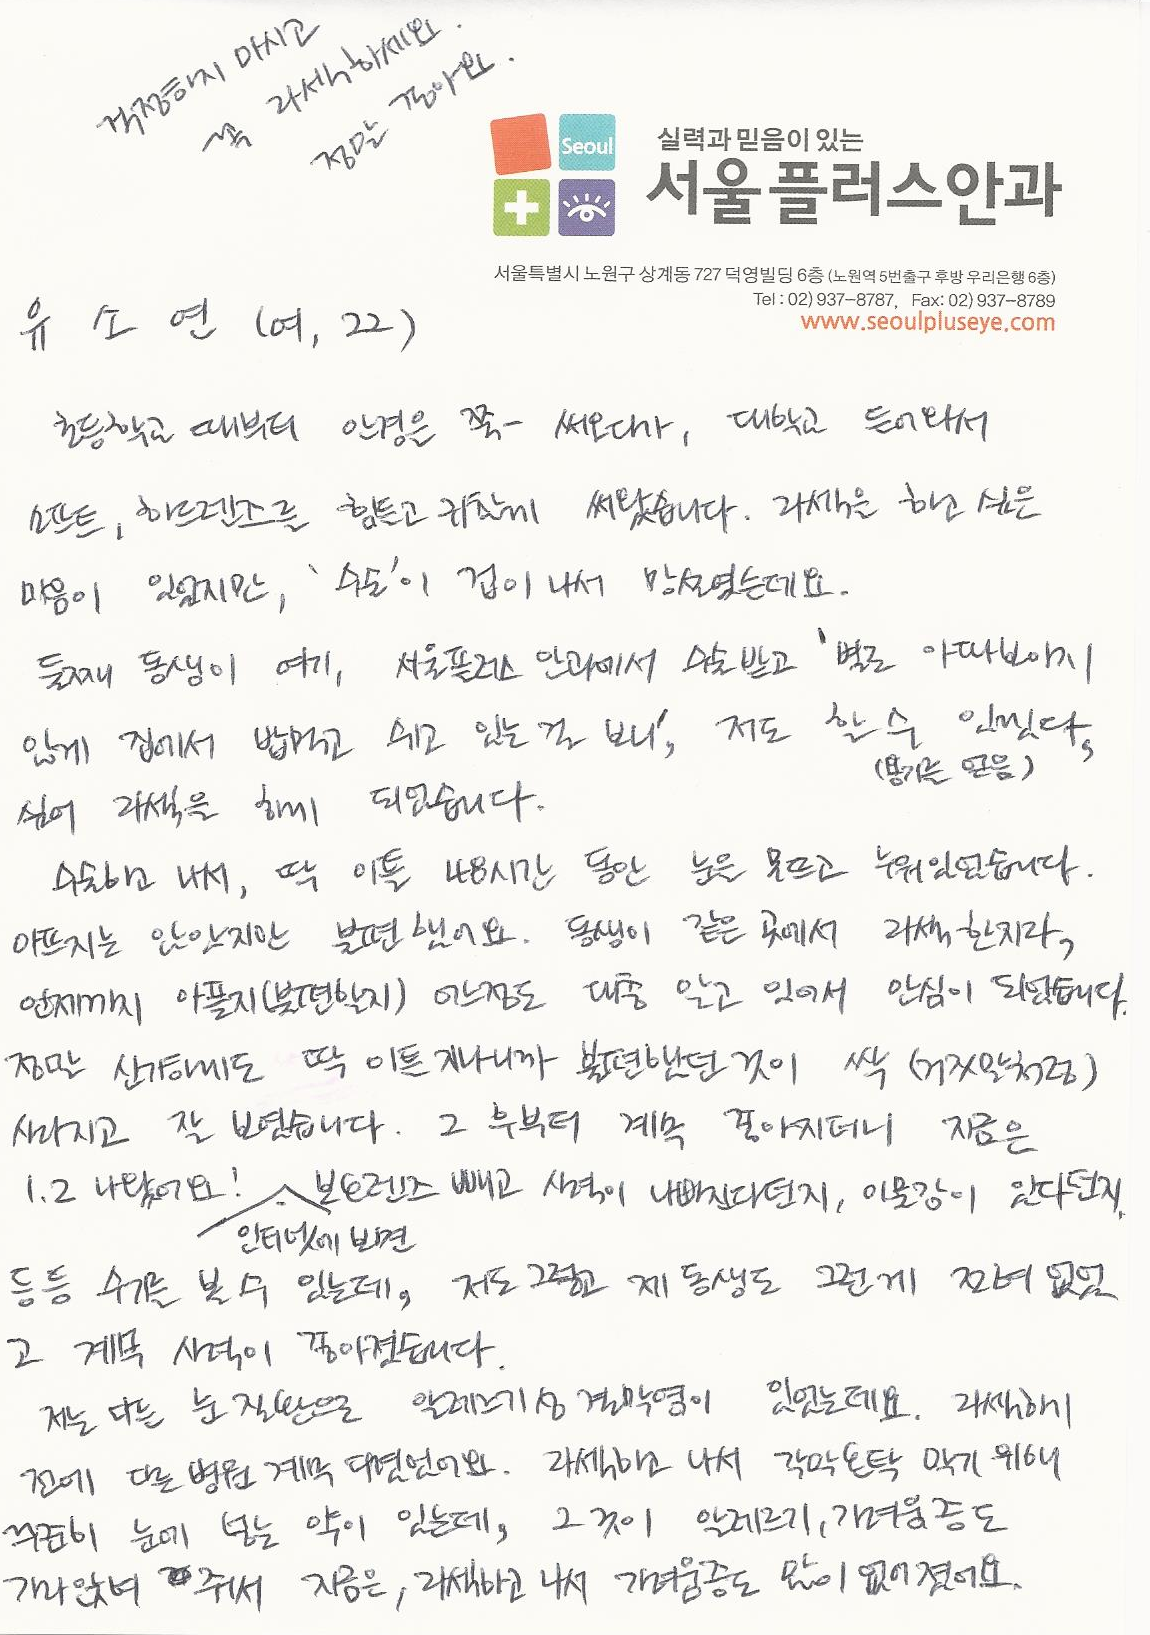 걱정하지 마시고
쏙 라섹하세요.
정말 좋아요.
Seoul
실력과 믿음이 있는
서울플러스안과
서울특별시 노원구 상계동 727 덕영빌딩 6층 (노원역 5번출구 후방 우리은행 6층)
Tel : 02) 937-8787, Fax: 02) 937-8789
www.seoulpluseye.com
유 소 연 (여, 22)
초등학교 때부터 안경은 쭉- 써오다가, 대학교 들어와서
소프트, 하드렌즈를 힘들고 귀찮게 써왔습니다. 라섹을 하고 싶은
마음이 있었지만, '수술'이 겁이 나서 망설였는데요.
둘째 동생이 여기, 서울플러스 안과에서 수술받고 '별로 아파보이지
않게 집에서 밥먹고 쉬고 있는 걸 보니', 저도 할 수 있겠다,
(용기를 얻음)
싶어 라섹을 하게 되었습니다.
수술하고 나서, 딱 이틀 48시간 동안 눈은 못뜨고 누워있었습니다.
아프지는 않았지만 불편했어요. 동생이 같은 곳에서 라섹한지라,
언제까지 아플지(불편할지) 어느정도 대충 알고 있어서 안심이 되었습니다.
정말 신기하게도 딱 이틀 지나니까 불편했던 것이 싹 (거짓말처럼)
사라지고 잘 보였습니다. 그 후부터 계속 좋아지더니 지금은
1.2 나왔어요! 보호렌즈 빼고 시력이 나빠진다던지, 이물감이 있다던지,
인터넷에 보면
등등 수기를 볼 수 있는데, 저도 그렇고 제 동생도 그런게 전혀 없었
고 계속 시력이 좋아졌습니다.
저는 다른 눈 질환으로 알레르기성 결막염이 있었는데요. 라섹하기
전에 다른 병원 계속 다녔었어요. 라섹하고 나서 각막혼탁 막기 위해
꾸준히 눈에 넣는 약이 있는데, 그것이 알레르기, 가려움증도
가라앉혀 줘서 지금은, 라섹하고 나서 가려움증도 많이 없어졌어요.